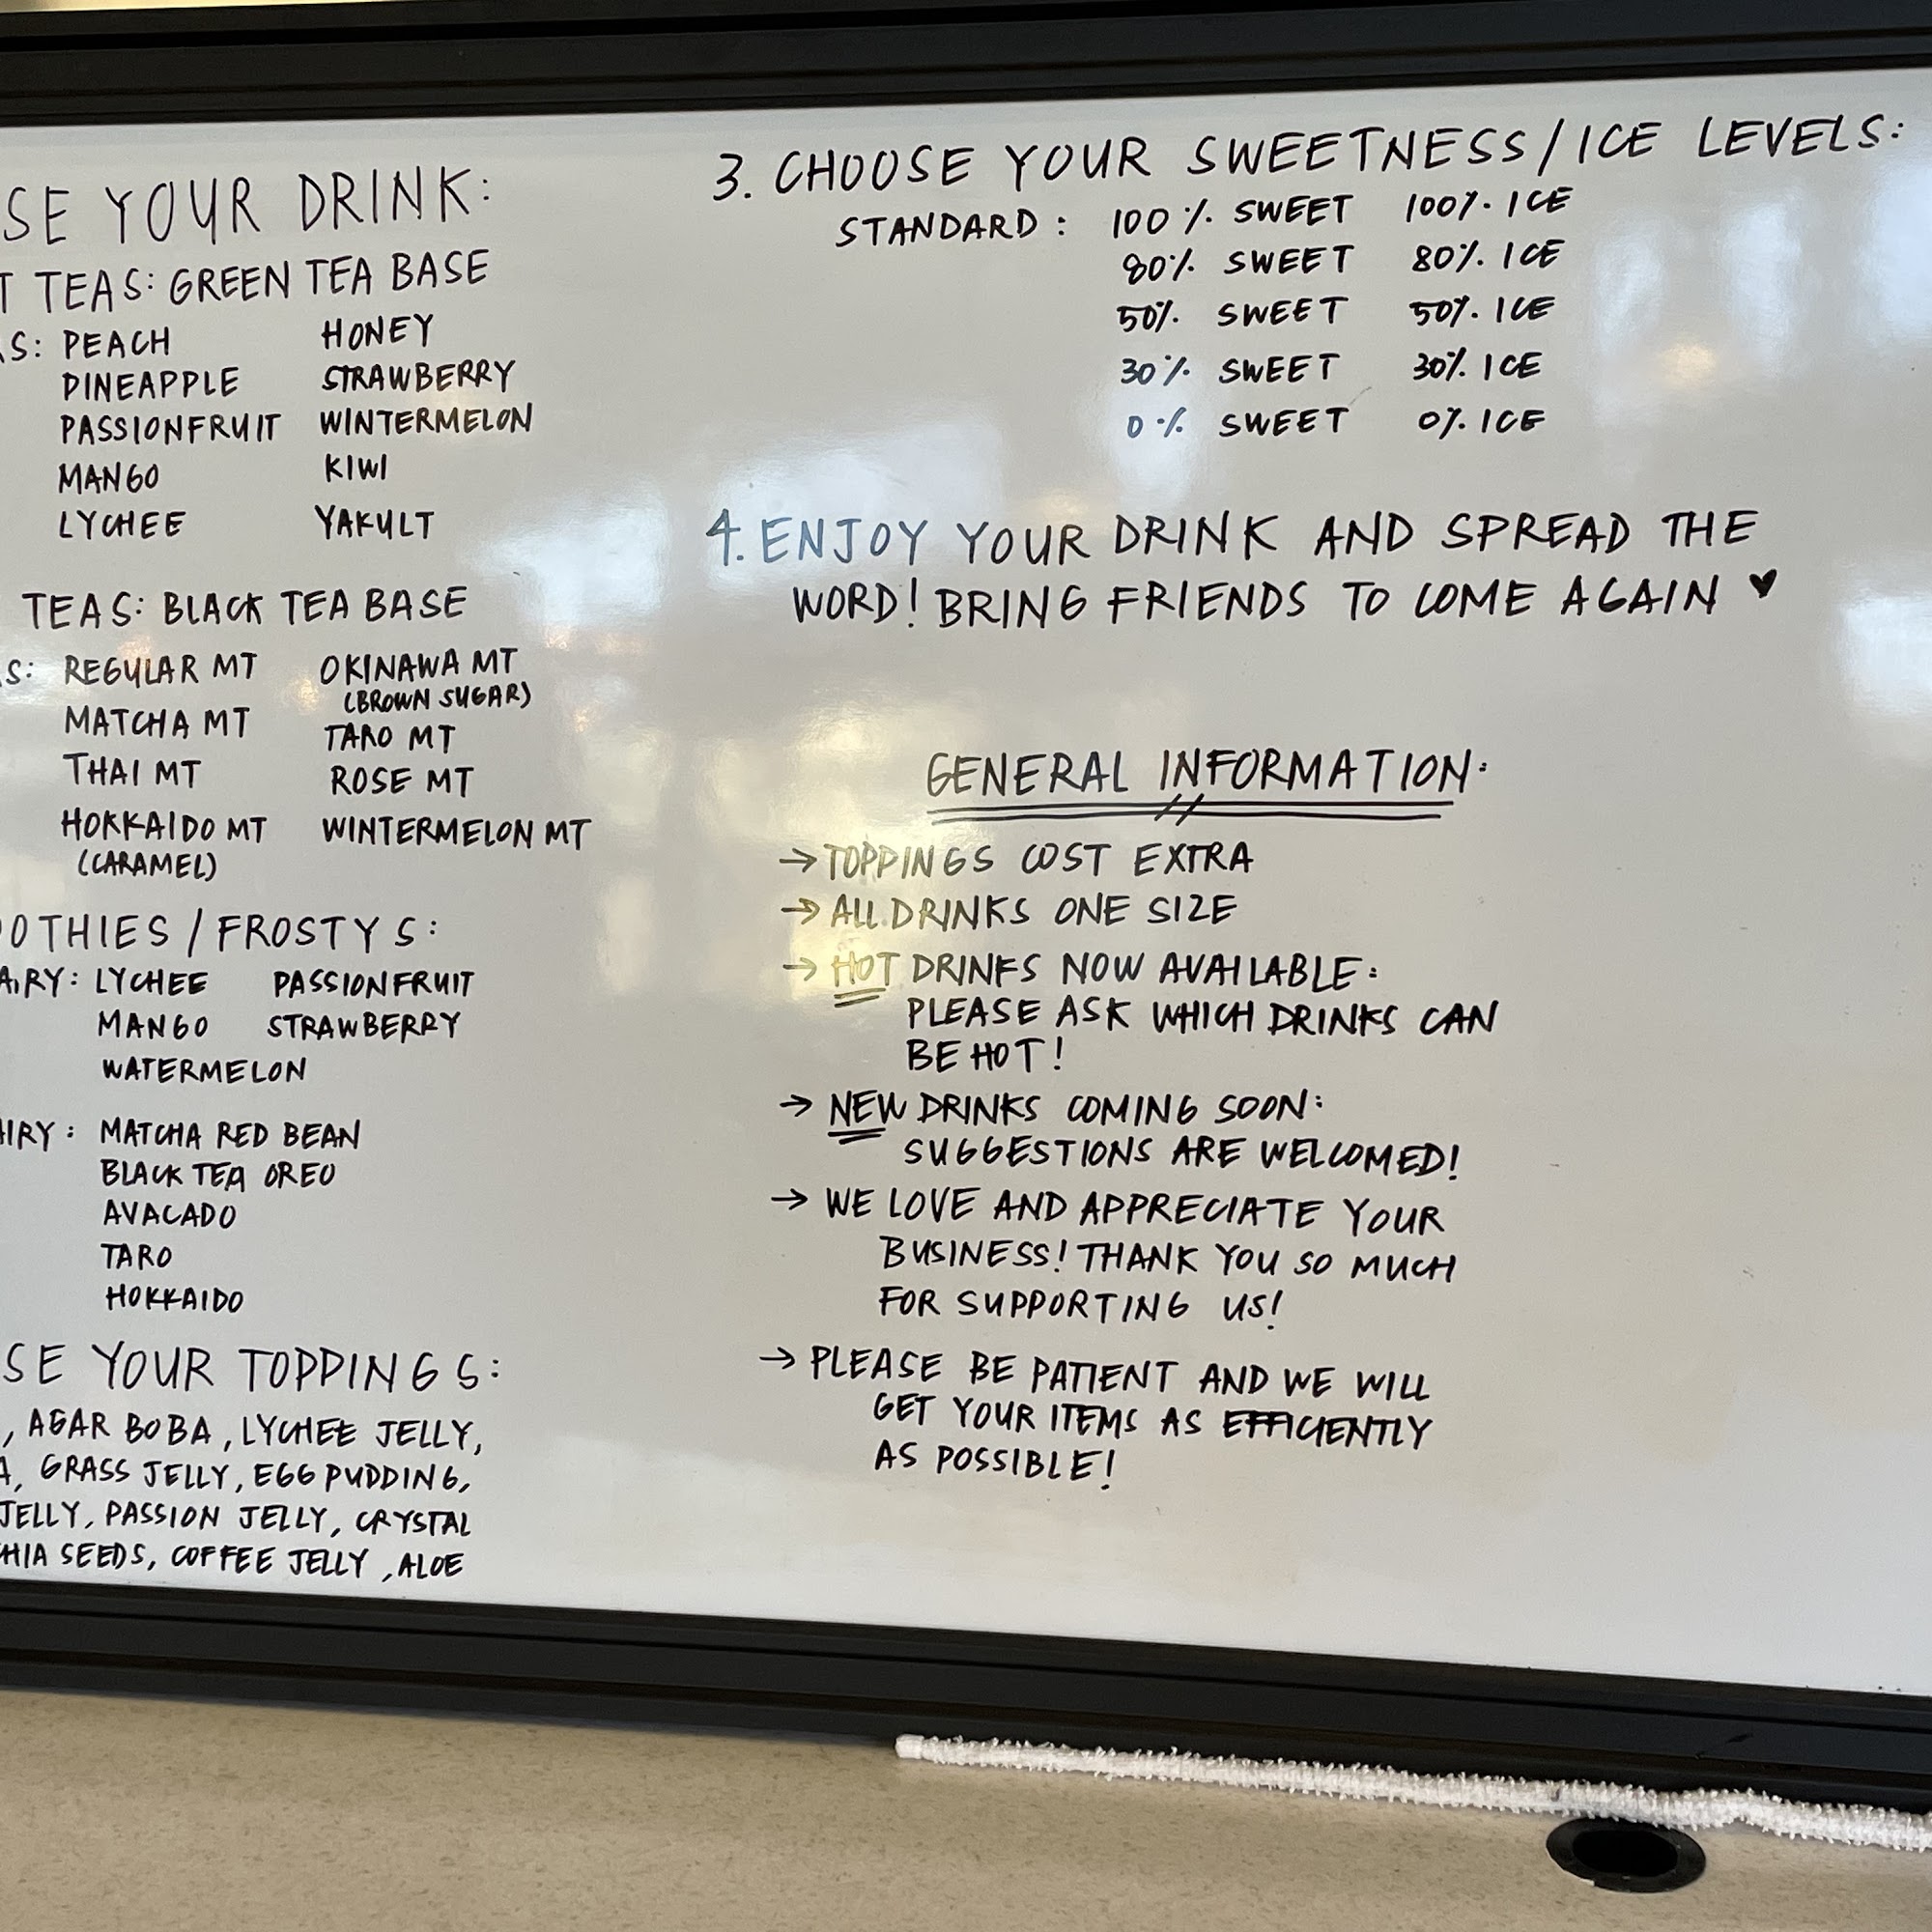 SE YOUR DRINK:
T TEAS: GREEN TEA BASE
AS: PEACH HONEY
PINEAPPLE STRAWBERRY
PASSIONFRUIT WINTERMELON
MANGO KIWI
LYCHEE YAKULT
TEAS: BLACK TEA BASE
S: REGULAR MT OKINAWA MT
(BROWN SUGAR)
MATCHA MT TARO MT
THAI MT ROSE MT
HOKKAIDO MT WINTERMELON MT
(CARAMEL)
OTHIES / FROSTYS:
AIRY: LYCHEE PASSIONFRUIT
MANGO STRAWBERRY
WATERMELON
AIRY: MATCHA RED BEAN
BLACK TEA OREO
AVACADO
TARO
HOKKAIDO
SE YOUR TOPPINGS:
, AGAR BOBA, LYCHEE JELLY,
A, GRASS JELLY, EGG PUDDING,
JELLY, PASSION JELLY, CRYSTAL
HIA SEEDS, COFFEE JELLY, ALOE
3. CHOOSE YOUR SWEETNESS/ICE LEVELS:
STANDARD: 100% SWEET 100% ICE
80% SWEET 80% ICE
50% SWEET 50% ICE
30% SWEET 30% ICE
0% SWEET 0% ICE
4. ENJOY YOUR DRINK AND SPREAD THE
WORD! BRING FRIENDS TO COME AGAIN ♥
GENERAL INFORMATION:
→ TOPPINGS COST EXTRA
→ ALL DRINKS ONE SIZE
→ HOT DRINKS NOW AVAILABLE:
PLEASE ASK WHICH DRINKS CAN
BE HOT!
→ NEW DRINKS COMING SOON:
SUGGESTIONS ARE WELCOMED!
→ WE LOVE AND APPRECIATE YOUR
BUSINESS! THANK YOU SO MUCH
FOR SUPPORTING US!
→ PLEASE BE PATIENT AND WE WILL
GET YOUR ITEMS AS EFFICIENTLY
AS POSSIBLE!